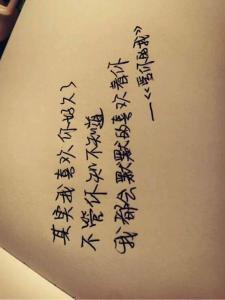 其实我喜欢你好久了
不管你知不知道
我都会默默的喜欢着你
—《爱你的我》